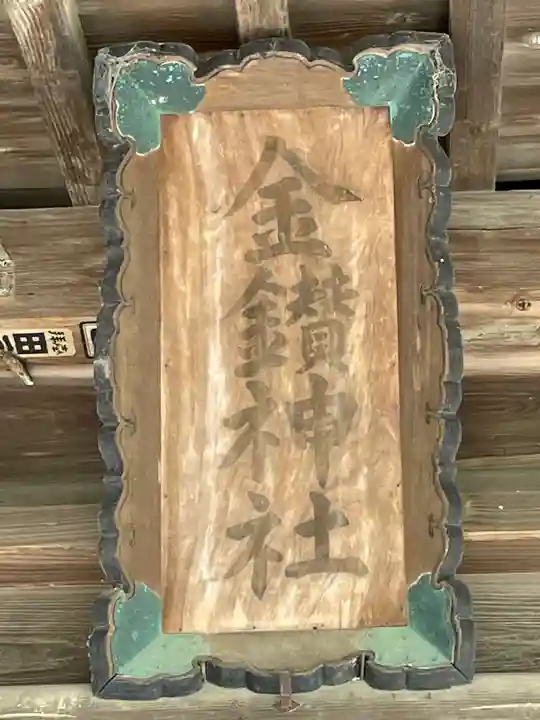 金鑚神社
田